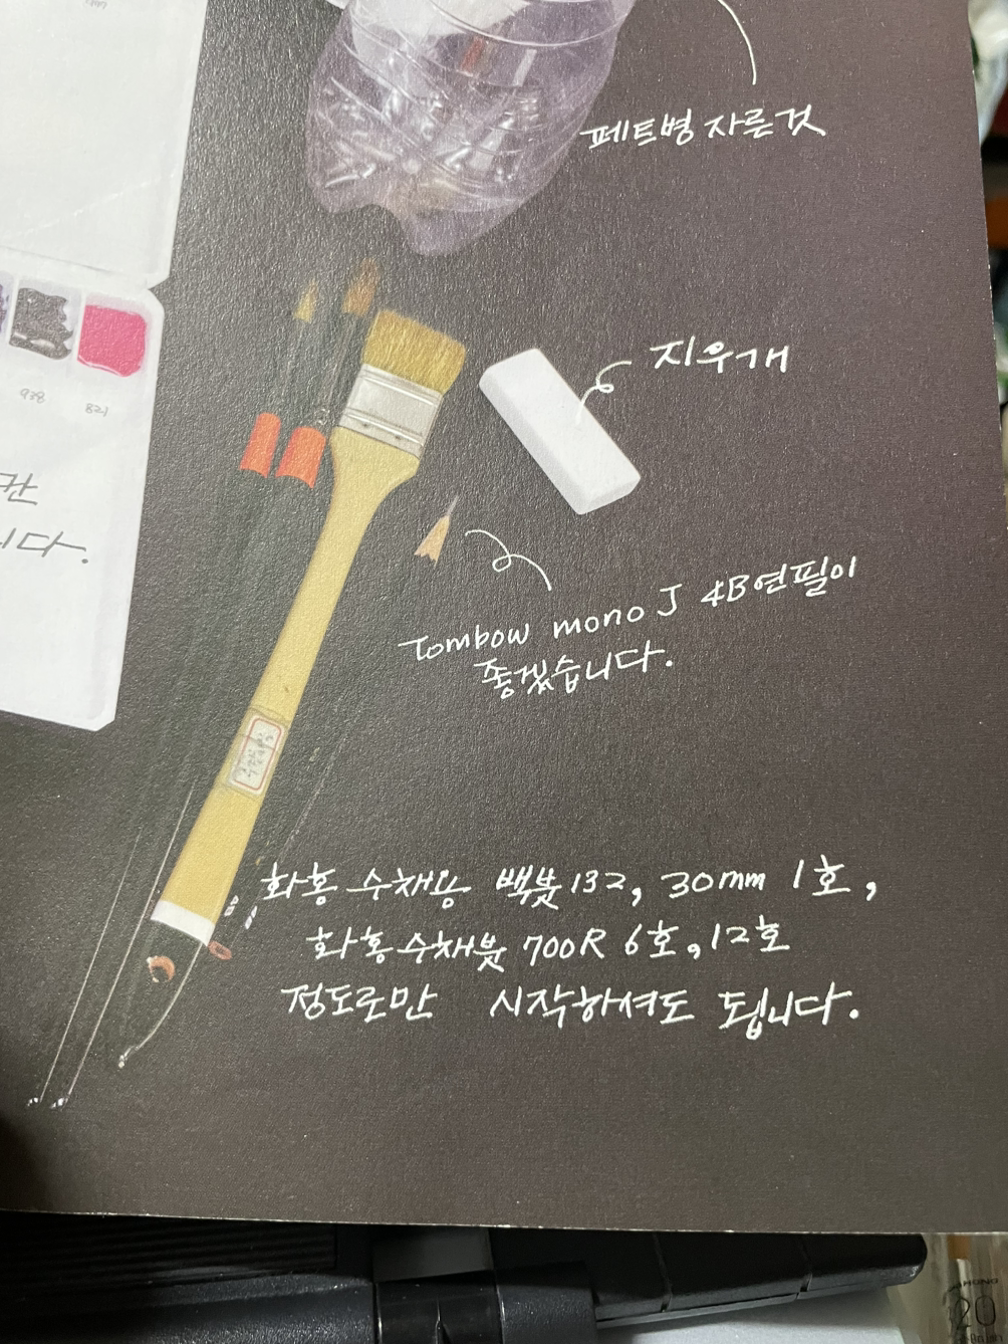 페트병 자른것
지우개
938 821
칸
니다.
Tombow mono J 4B연필이
좋겠습니다.
화홍 수채용 백붓 132, 30mm 1호,
화홍수채붓 700R 6호, 12호
정도로만 시작하셔도 됩니다.
20